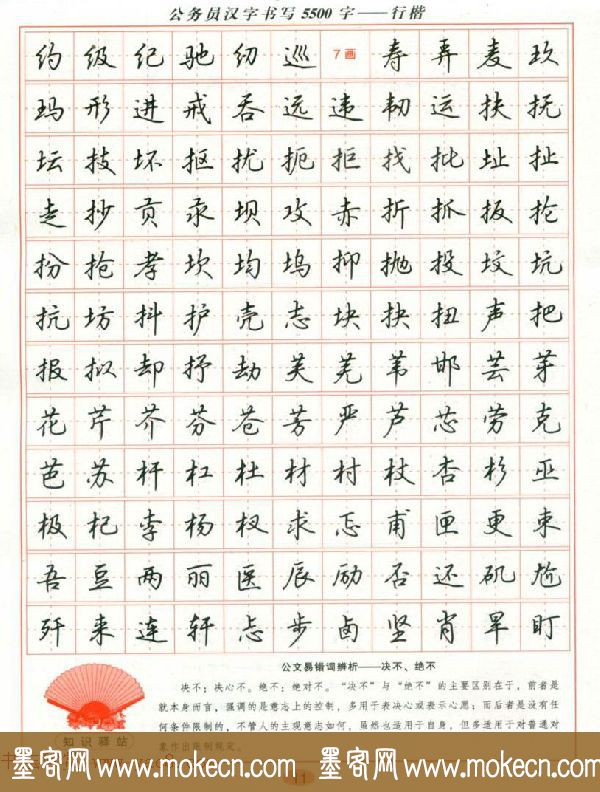 公务员汉字书写5500字——行楷
约级纪驰纫巡7画寿弄麦玖
玛形进戒吞远违韧运扶抚
坛技坏抠扰扼拒找批址扯
走抄贡汞坝攻赤折抓扳抡
扮抢孝坎均坞抑抛投坟坑
抗坊抖护壳志块抉扭声把
报拟却抒劫芙芜苇邯芸芽
花芹芥芬苍芳严芦芯劳克
芭苏杆杠杜材村杖杏杉巫
极杞李杨杈求忑甫匣更束
吾豆两丽医辰励否还矶尬
歼来连轩忐步卤坚肖旱盯
公文易错词辨析——决不、绝不
决不：决心不。绝不：绝对不。“决不”与“绝不”的主要区别在于，前者是
就本身而言，强调的是意志上的控制，多用于表决心或表示心愿；而后者是没有任
何条件限制的，不管人的主观意志如何，虽然也适用于自身，但多适用于对普遍对
象作出限制规定。
知识驿站
墨客网 www.mokecn.com 墨客网 www.mokecn.com